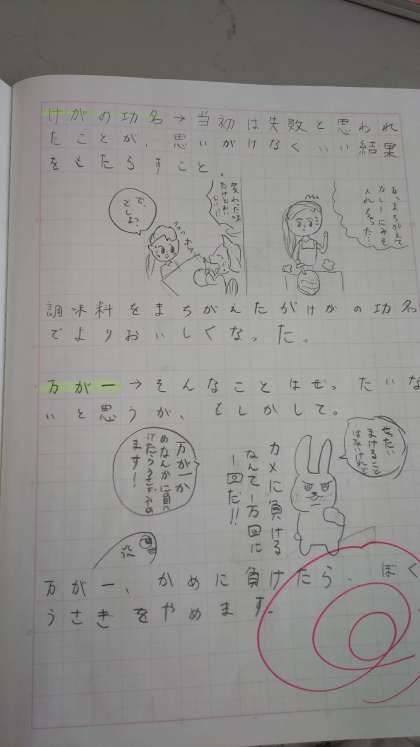 けがの功名→当初は失敗と思われ
たことが、思いがけなくいい結果
をもたらすこと。
あっ、まちがえて
カレーにみそ
入れちゃった…
変わった味
だけどおい
しい!!
で、
でしょ。
調味料をまちがえたがけがの功名
でよりおいしくなった。
万が一→そんなことはぜったいな
いと思うが、もしかして。
ぜったい
まけること
はないけれど
カメに負ける
なんて一万回に
一回だ!!
万が一か
めなんかに負
けたらうさぎやめ
ます!!
万が一、かめに負けたら、ぼく
うさぎをやめます。